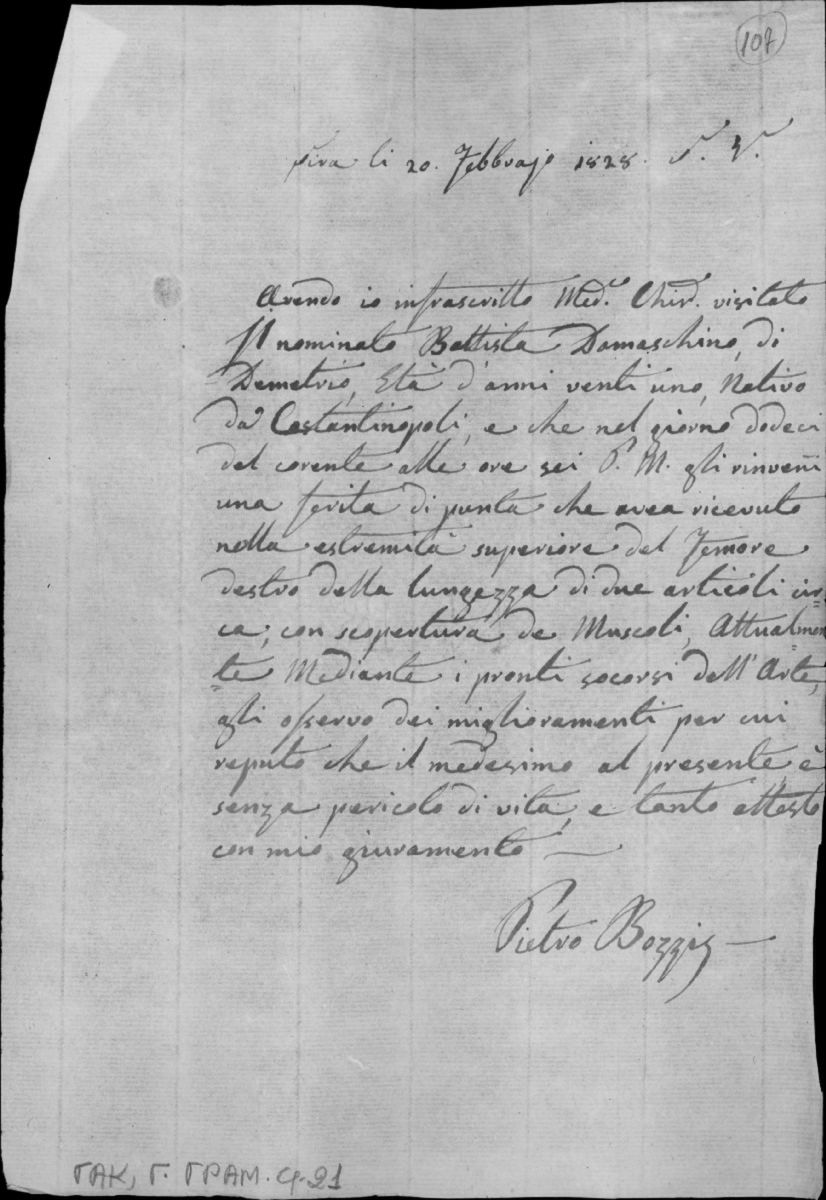 107
Sira li 20. Febbrajo 1828. S. V.
Avendo io infrascritto Med.º Chir.º visitato
Il nominato Battista Damaschino, di
Demetrio, Età d'anni venti uno, Nativo
da Costantinopoli, e che nel giorno dodeci
del corente alle ore sei P. M. gli rinveñi
una ferita di punta che avea ricevuto
nella estremità superiore del Femore
destro della lungezza di due articoli cir=
ca, con scopertura de Muscoli, Attualmen
=te Mediante i pronti socorsi dell'Arte,
gli osservo dei miglioramenti per cui
reputo che il medesimo al presente è
senza pericolo di vita, e tanto attesto
con mio giuramento —
Pietro Bozzis —
ΓΑΚ, Γ. ΓΡΑΜ. φ. 21